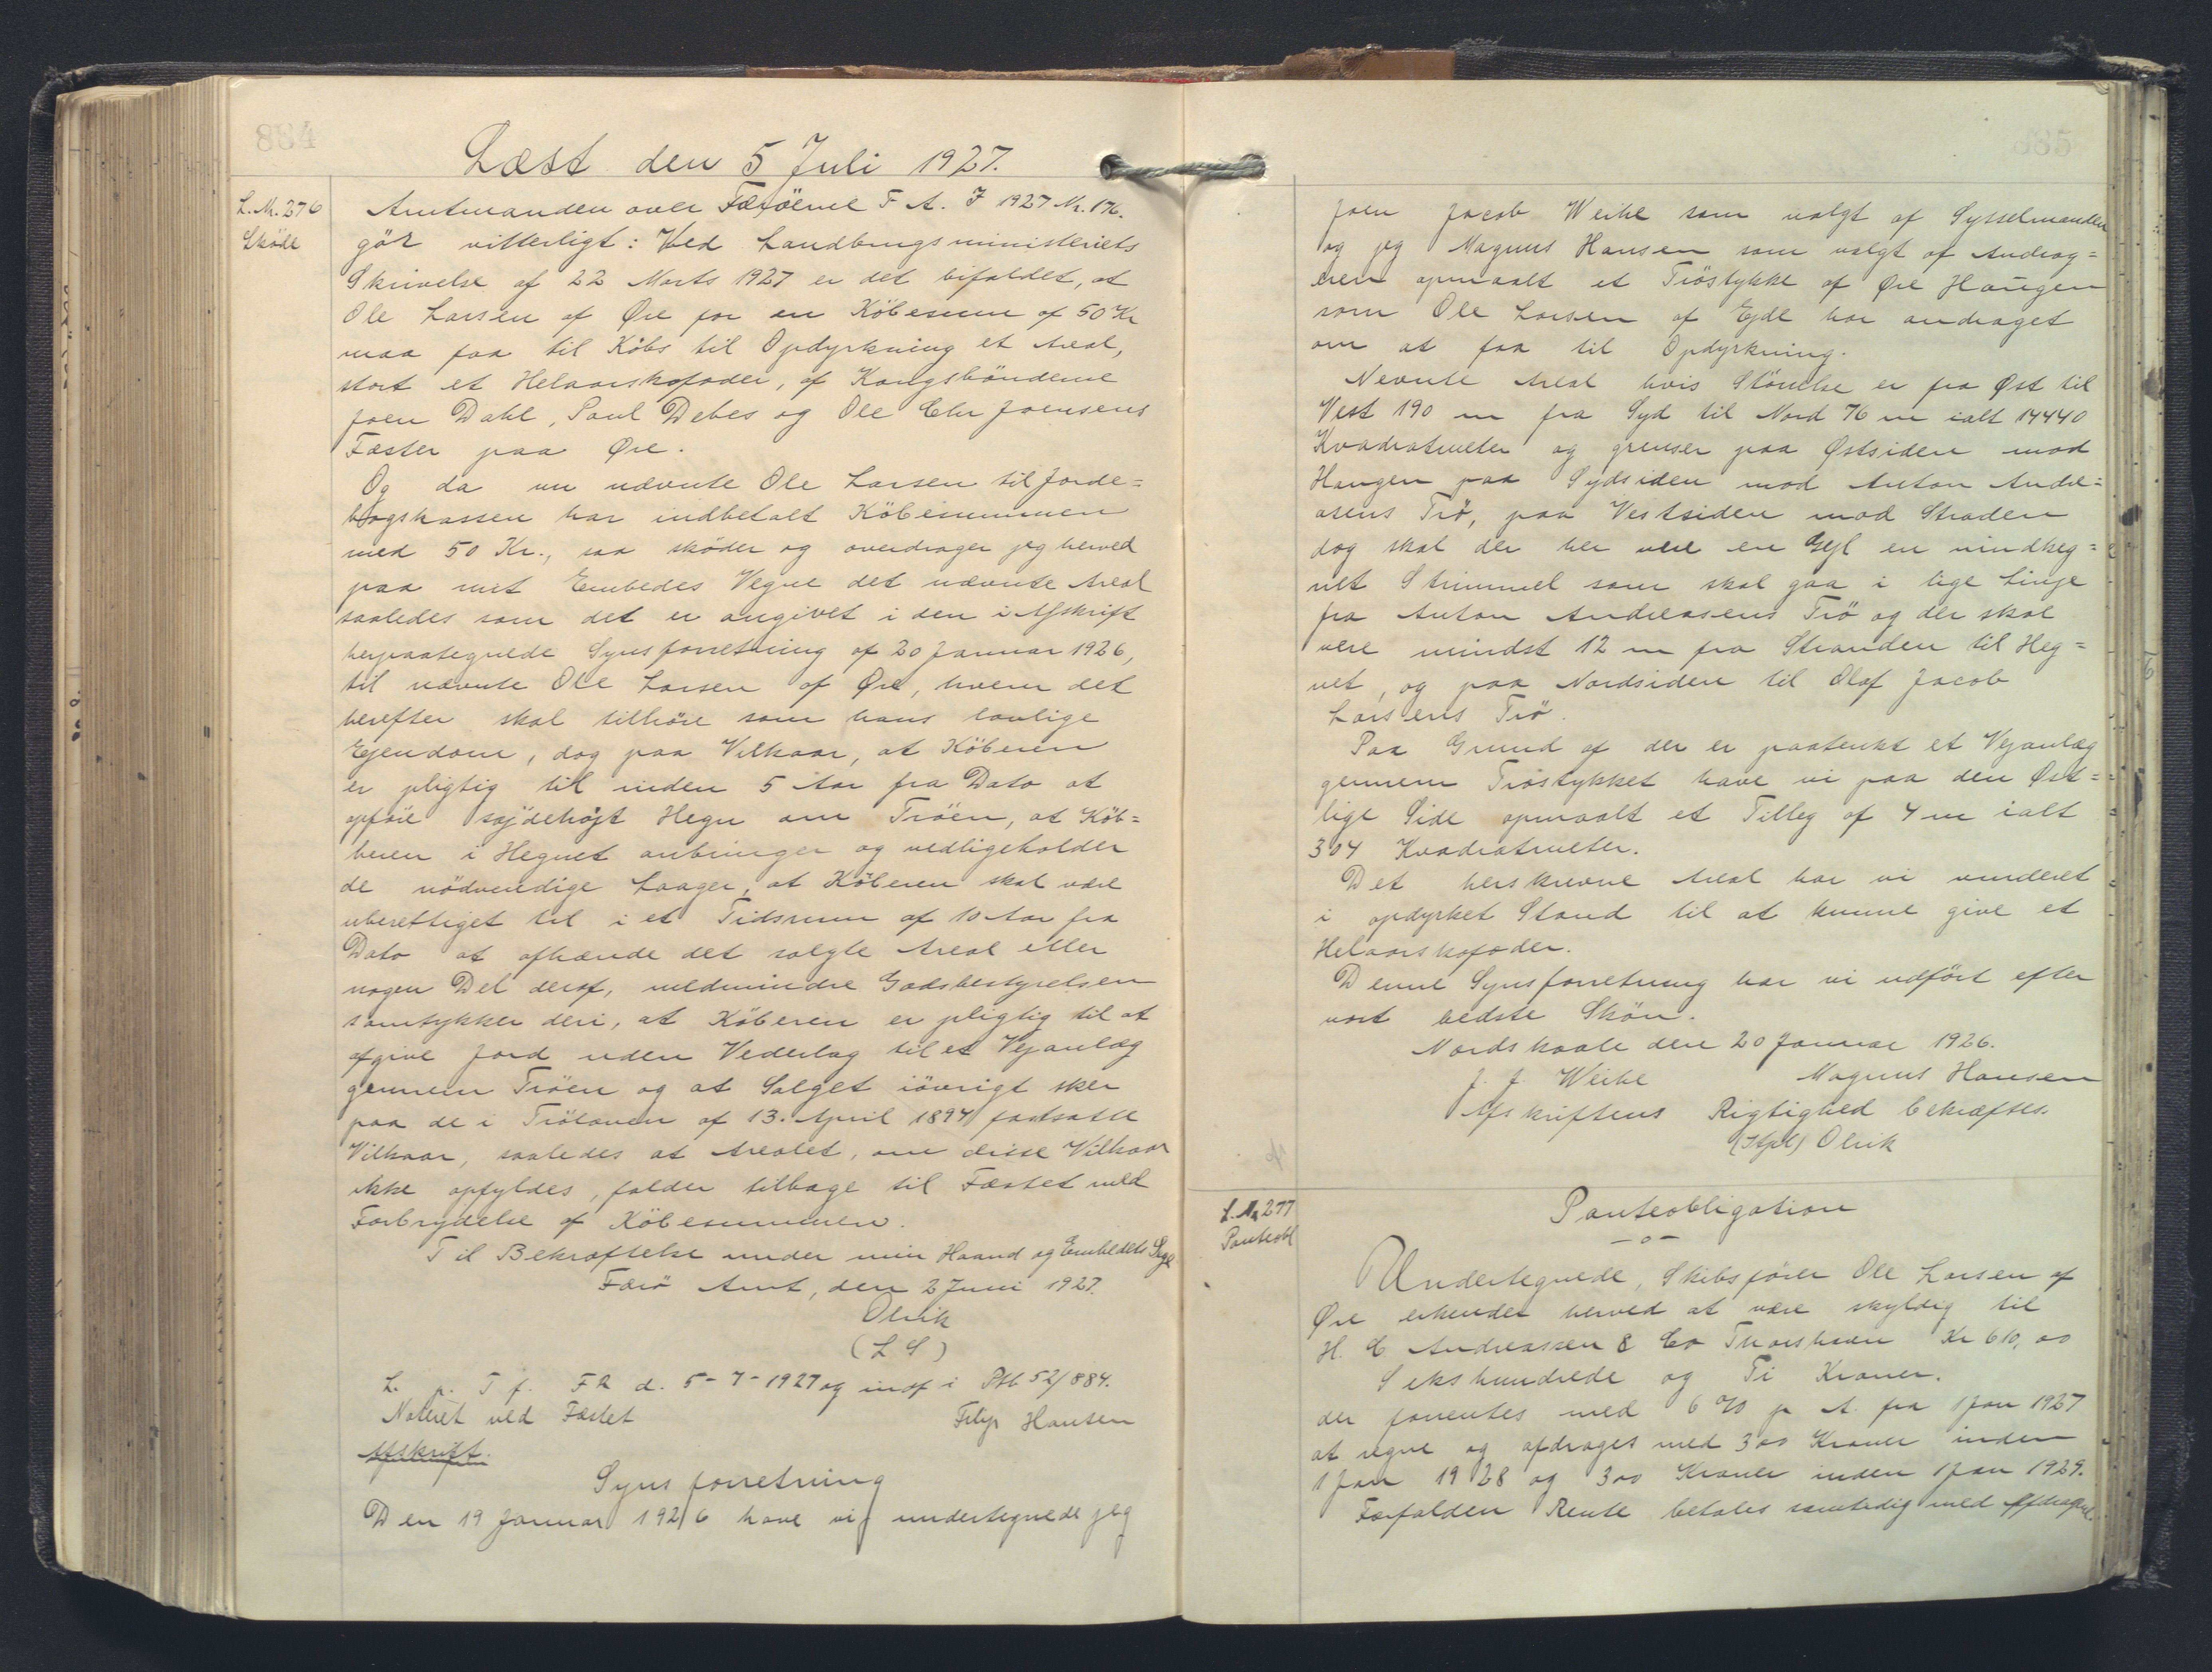 884
Læst den 5 Juli 1927.
L. Nr. 276
Sköde
Amtmanden over Færöerne F A. J 1927 Nr. 176.
gör vitterligt: Ved Landbrugsministeriets
Skrivelse af 22 Marts 1927 er det bifaldet, at
Ole Larsen af Øre for en Købesum af 50 Kr
maa faa til Købs til Opdyrkning et Areal,
stort et Helaarskofoder, af Kongsbönderne
Joen Dahl, Poul Debes og Ole Chr Joensens
Fæster paa Øre.
Og da nu nævnte Ole Larsen til Jorde=
bogskassen har indbetalt Köbesummen
med 50 Kr., saa sköder og overdrager jeg herved
paa mit Embedes Vegne det nævnte Areal
saaledes som det er angivet i den i Afskrift
herpaategnede Synsforretning af 20 Januar 1926,
til nævnte Ole Larsen af Øre, hvem det
herefter skal tilhöre som hans lovlige
Ejendom, dog paa Vilkaar, at Köberen
er pligtig til inden 5 Aar fra Dato at
opföre sojdehöjt Hegn om Tröen, at Köb=
beren i Hegnet anbringer og vedligeholder
de nödvendige Laager, at Köberen skal være
uberettiget til i et Tidsrum af 10 Aar fra
Dato at afhænde det solgte Areal eller
nogen Del deraf, medmindre Godsbestyrelsen
samtykker deri, at Köberen er pligtig til at
afgive Jord uden Vederlag til et Vejanlæg
gennem Tröen og at Salget iövrigt sker
paa de i Tröloven af 13. April 1894 fastsatte
Vilkaar, saaledes at Arealet, om disse Vilkaar
ikke opfyldes, falder tilbage til Fæstet med
Forbrydelse af Köbesummen.
Til Bekræftelse under min Haand og Embedets Segl
Færö Amt, den 2 Juni 1927.
Olrik
(L S)
L. p. T f. F R d. 5-7-1927 og indf i Ptb 52/884.
Noteret ved Fæstet Filip Hansen
Afskrift.
Synsforretning
Den 19 Januar 1926 have vi undertegnede jeg
885
Joen Jacob Weihe som valgt af Sysselmanden
og jeg Magnus Hansen som valgt af Andrag=
eren opmaalt et Tröstykke af Øre Haugen
som Ole Larsen af Ejde har andraget
om at faa til Opdyrkning.
Nevnte Areal hvis Störrelse er fra Øst til
Vest 190 m fra Syd til Nord 76 m ialt 14440
Kvadratmeter og grenser paa Østsiden mod
Haugen paa Sydsiden mod Anton Andre=
asens Trö, paa Vestsiden mod Straden
dog skal der her vere en Gejl en uindheg=
net Strimmel som skal gaa i lige Linje
fra Anton Andreasens Trö og der skal
vere mindst 12 m fra Stranden til Heg=
net, og paa Nordsiden til Olaf Jacob
Larsens Trö.
Paa Grund af der er paatenkt et Vejanlæg
gennem Tröstykket have vi paa den Øst=
lige Side opmaalt et Tilleg af 4 m ialt
304 Kvadratmeter.
Det herskrevne Areal har vi vurderet
i opdyrket Stand til at kunne give et
Helaarskofoder.
Denne Synsforretning har vi udfört efter
vort bedste Skön.
Nordskaale den 20 Januar 1926.
J. J. Weihe Magnus Hansen
Afskriftens Rigtighed bekræftes.
(Stpl) Olrik
L. Nr 277
Panteobl
Panteobligation
-o-
Undertegnede, Skibsförer Ole Larsen af
Øre erkender herved at være skyldig til
H. C Andreassen & Co Thorshavn Kr 610,00
Sekshundrede og Ti Kroner.
der forrentes med 6 % p A. fra 1 Jan 1927
at regne og afdrages med 300 Kroner inden
1 Jan 1928 og 300 Kroner inden 1 Jan 1929.
Forfalden Rente betales samtidig med Afdragene.